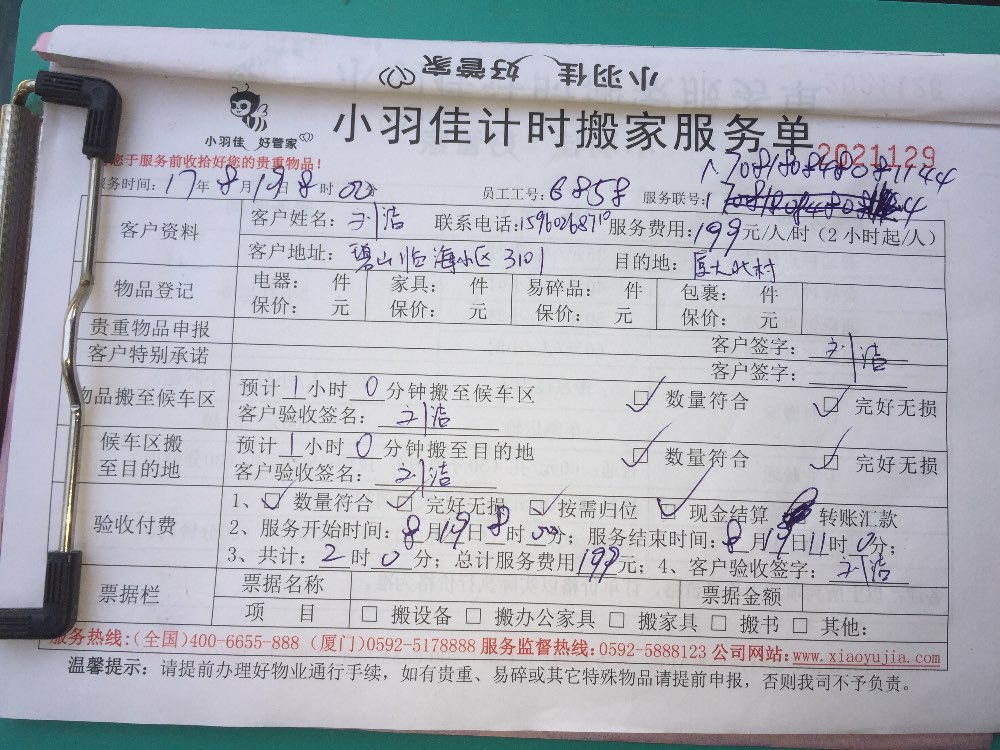 小羽佳 好管家
小羽佳 好管家
小羽佳计时搬家服务单
2021129
您于服务前收拾好您的贵重物品！
服务时间：17年8月19日8时00分 员工工号：6858 服务联号：
客户资料
客户姓名：刘洁 联系电话：15960268710 服务费用：199元/人/时（2小时起/人）
客户地址：碧山临海小区3101 目的地：厦大北村
物品登记
电器： 件 家具： 件 易碎品： 件 包裹： 件
保价： 元 保价： 元 保价： 元 保价： 元
贵重物品申报 客户签字：刘洁
客户特别承诺 客户签字：
物品搬至候车区
预计1小时0分钟搬至候车区 数量符合 完好无损
客户验收签名：刘洁
候车区搬至目的地
预计1小时0分钟搬至目的地 数量符合 完好无损
客户验收签名：刘洁
验收付费
1、□数量符合 □完好无损 □按需归位 □现金结算 转账汇款
2、服务开始时间：8月19日8时00分；服务结束时间：8月19日11时0分；
3、共计：2时0分；总计服务费用199元；4、客户验收签字：刘洁
票据栏
票据名称 票据金额
项 目 □ 搬设备 □ 搬办公家具 □ 搬家具 □ 搬书 □ 其他：
服务热线：(全国)400-6655-888 (厦门)0592-5178888 服务监督热线：0592-5888123 公司网站：www.xiaoyujia.com
温馨提示：请提前办理好物业通行手续，如有贵重、易碎或其它特殊物品请提前申报，否则我司不予负责。